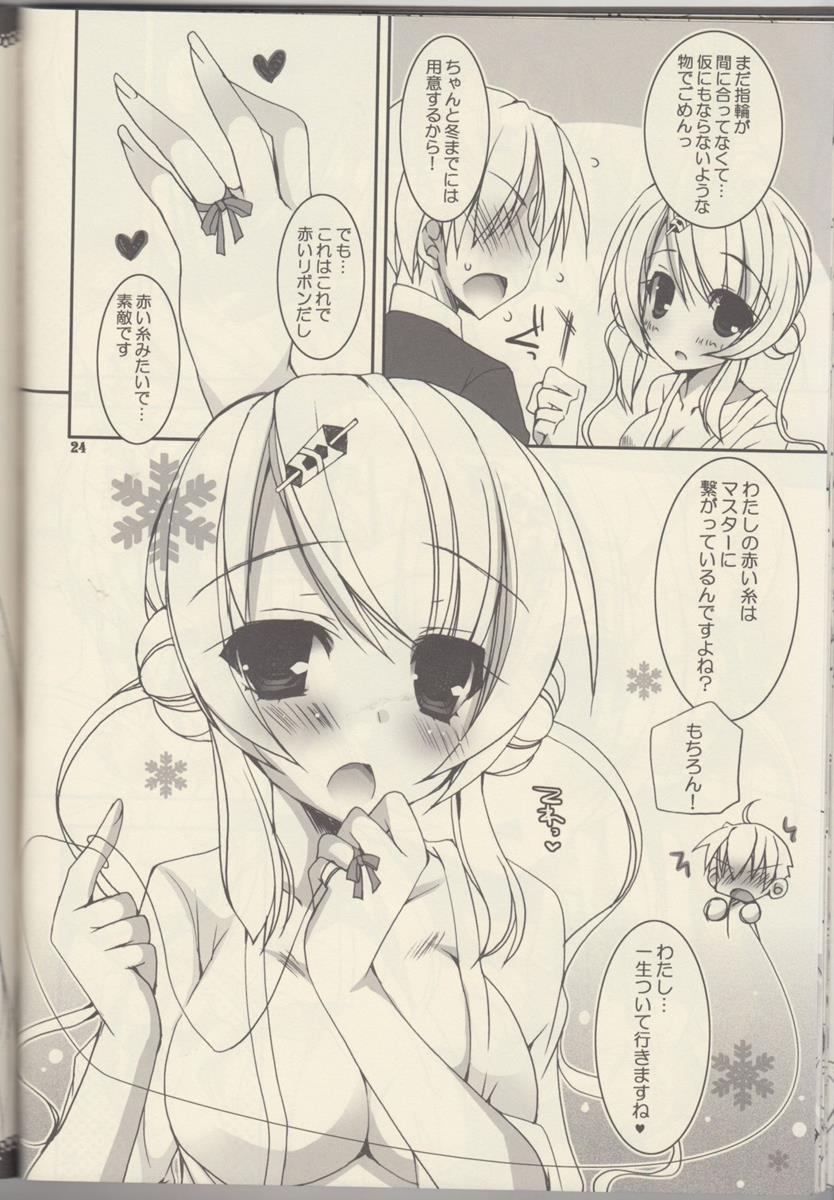 まだ指輪が
間に合ってなくて…
仮にもならないような
物でごめんっ
ちゃんと冬までには
用意するから!
でも…
これはこれで
赤いリボンだし
赤い糸みたいで…
素敵です
24
わたしの赤い糸は
マスターに
繋がっているんですよね?
もちろん!
てれっ♡
わたし…
一生ついて行きますね♥